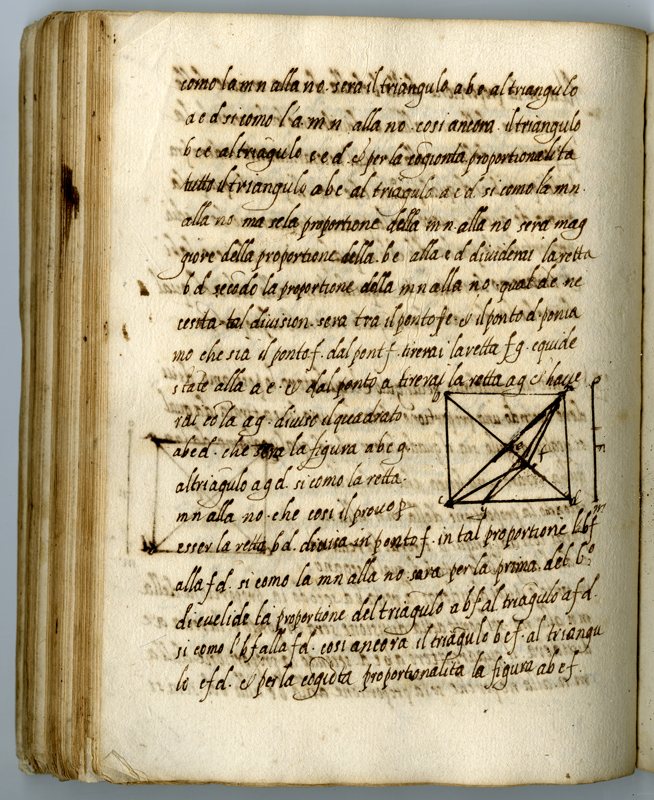 como la m n alla n o. sera il triangulo a b e al triangulo
a e d si como l'a m n alla n o cosi ancora il triangulo
b c e al triāgulo c e d. & per la cōgionta proportionalita
tutto il triangulo a b c al triāgulo a c d si como la m n.
alla n o ma se la proportione della m n alla n o sera mag
giore della proportione della. b e alla e d dividerai la retta
b d. secōdo la proportione della m n alla n o qual de ne
cesita tal division. sera tra il ponto e & il ponto d. ponia
mo che sia il ponto f. dal pont f. tirerai la retta f g. equide
state alla a c. & dal ponto a tirerai la retta a g & have
rai cō la a g. diviso il quadrato
a b c d. che sera la figura a b c g.
al triāgulo a g d. si como la retta.
m n alla n o. che cosi il provo p
esser la retta b d. divisa in ponto f. in tal proportione l b f
alla f d. si como la m n alla n o sara per la prima. del 6°
di euclide la proportione del triāgulo a b f al triāgulo a f d.
si como l'b f alla f d. cosi ancora il triāgulo b c f. al triangu
lo c f d. & per la cōgiōta proportionalita la figura a b c f.
b
c
g
d
f
m